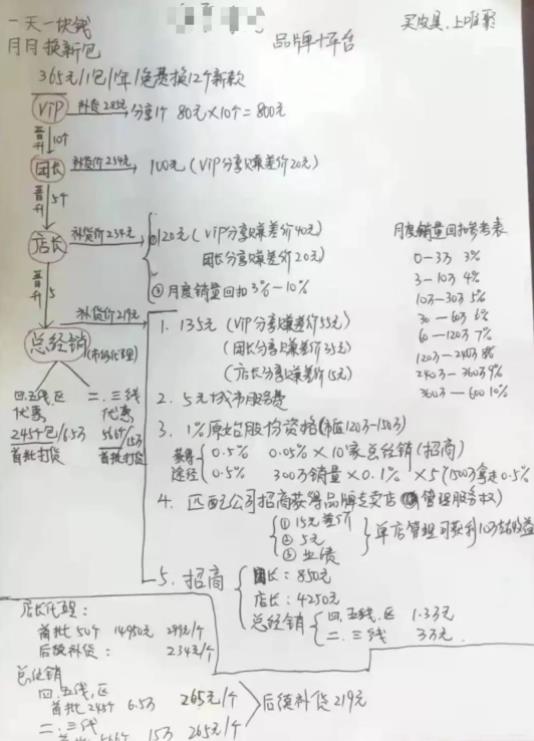 一天一块钱
月月换新包
品牌+平台
买皮具,上唯聚
365元/1包/年/免费换12个新款
VIP 补货285元 分享1个 80元×10个=800元
晋升 10个
团长 补货价254元 100元(VIP分享1赚差价20元)
晋升 5个
店长 补货价234元 ①120元(VIP分享1赚差价40元)
团长分享1赚差价20元)
②月度销量回扣3%-10%
月度销量回扣参考表
0-3万 3%
3-10万 4%
10万-30万 5%
30-60万 6%
60-120万 7%
120万-240万 8%
240万-360万 9%
360万-600 10%
晋升 5
总经销(市场代理) 补货价219元
1. 135元(VIP分享1赚差价55元)
(团长分享1赚差价35元)
(店长分享1赚差价15元)
2. 5元城市服务费
3. 1%原始股份资格(市值120万-150万)
获得途径
0.5% 0.05%×10家总经销(招商)
0.5% 300万销量×0.1%×5(1500万拿走0.5%
4. 匹配公司招商获得品牌专卖店(管理服务权)
①15元差价
②5元
③业绩
单店管理可获利10万左右收益
5. 招商
团长:850元
店长:4250元
总经销
四.五线.区 1.3万元
二.三线 3万元.
四.五线.区
代惠
245个包/6.5万
首批打货
二.三线
代惠
566个/15万
首批打货
店长代理:
首批50个 14950元 299元/个
后续补货: 234元/个
总经销
四.五线.区
首批245个 6.5万 265元/个
二.三线
首批566个 15万 265元/个
后续补货219元